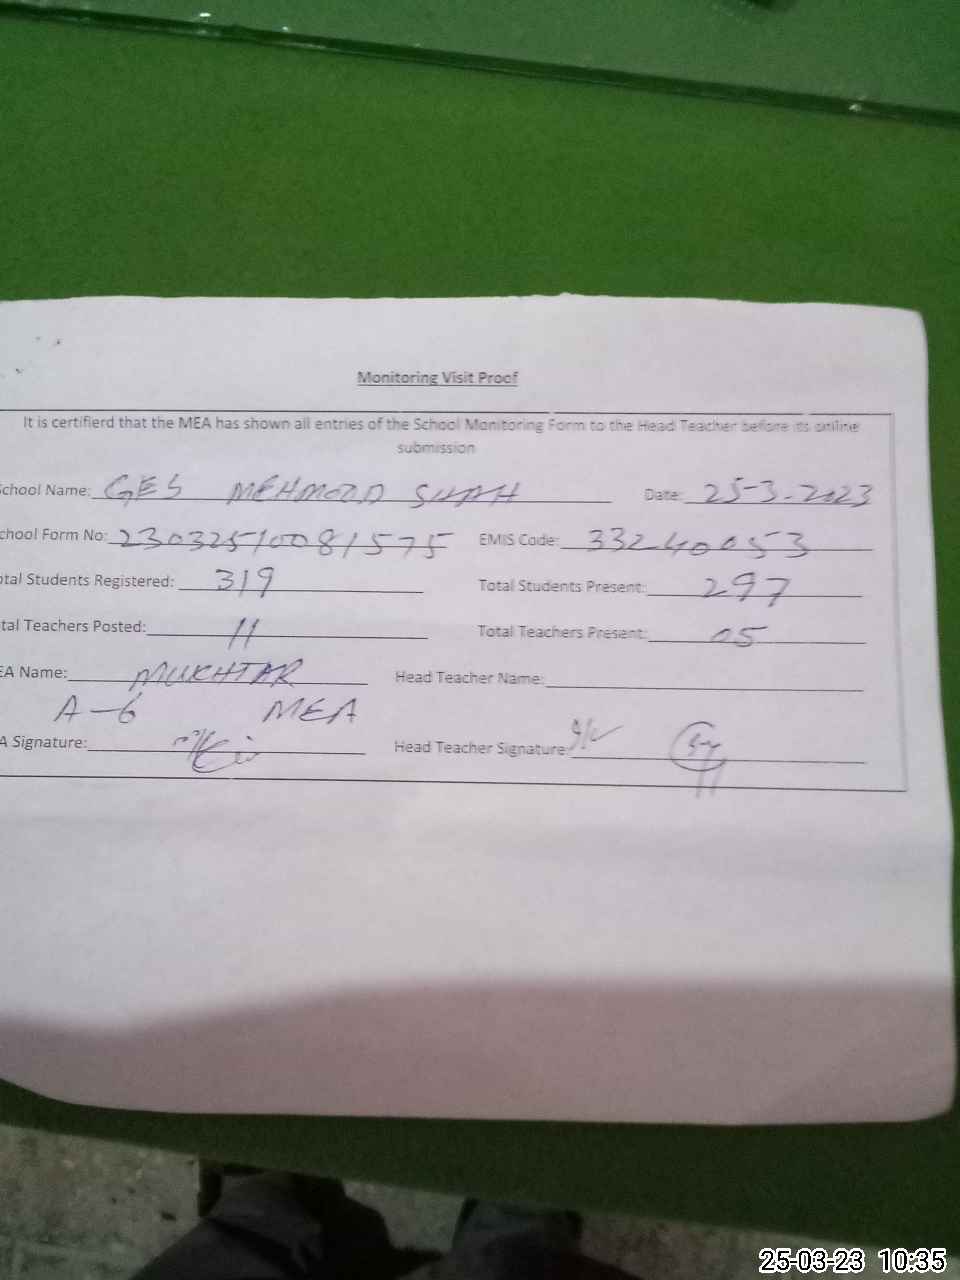 Monitoring Visit Proof
It is certifierd that the MEA has shown all entries of the School Monitoring Form to the Head Teacher before its online
submission
chool Name: GES MEHMOOD SHAH Date: 25-3-2023
chool Form No: 23032510081575 EMIS Code: 33240053
otal Students Registered: 319 Total Students Present: 297
tal Teachers Posted: 11 Total Teachers Present: 05
EA Name: MUKHTAR Head Teacher Name:
A-6 MEA
A Signature: Head Teacher Signature
25-03-23 10:35